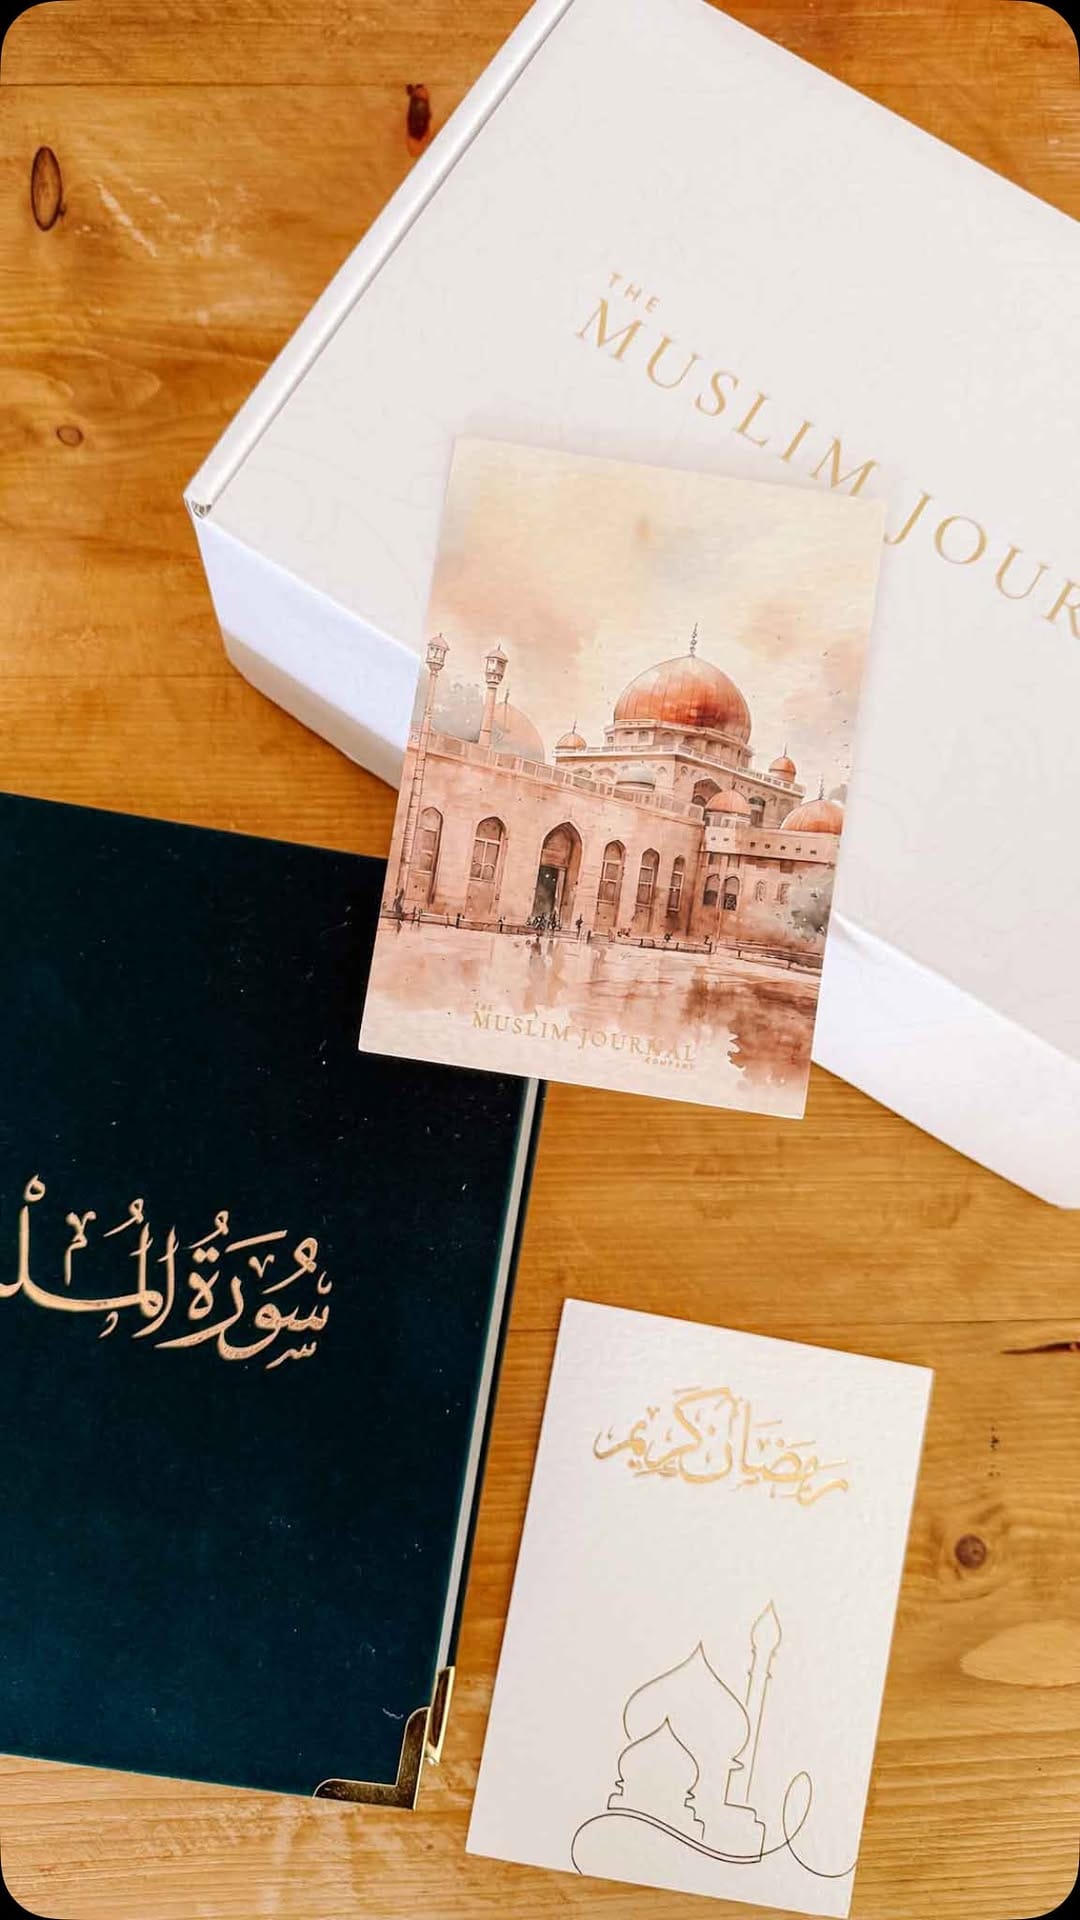 THE
MUSLIM JOUR
THE
MUSLIM JOURNAL
COMPANY
سُورَةُ المُلْ
رمَضَان كَريم